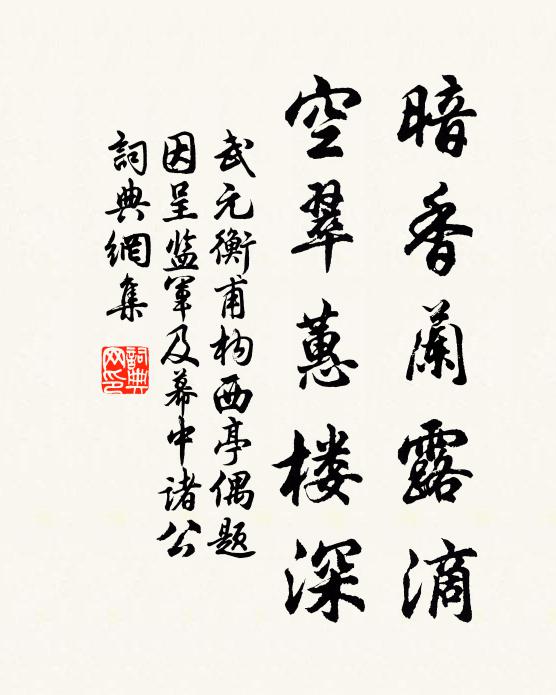 暗香蘭露滴
空翠蕙楼深
武元衡甫构西亭偶题
因呈监軍及幕中诸公
詞典網集
詞典
网印